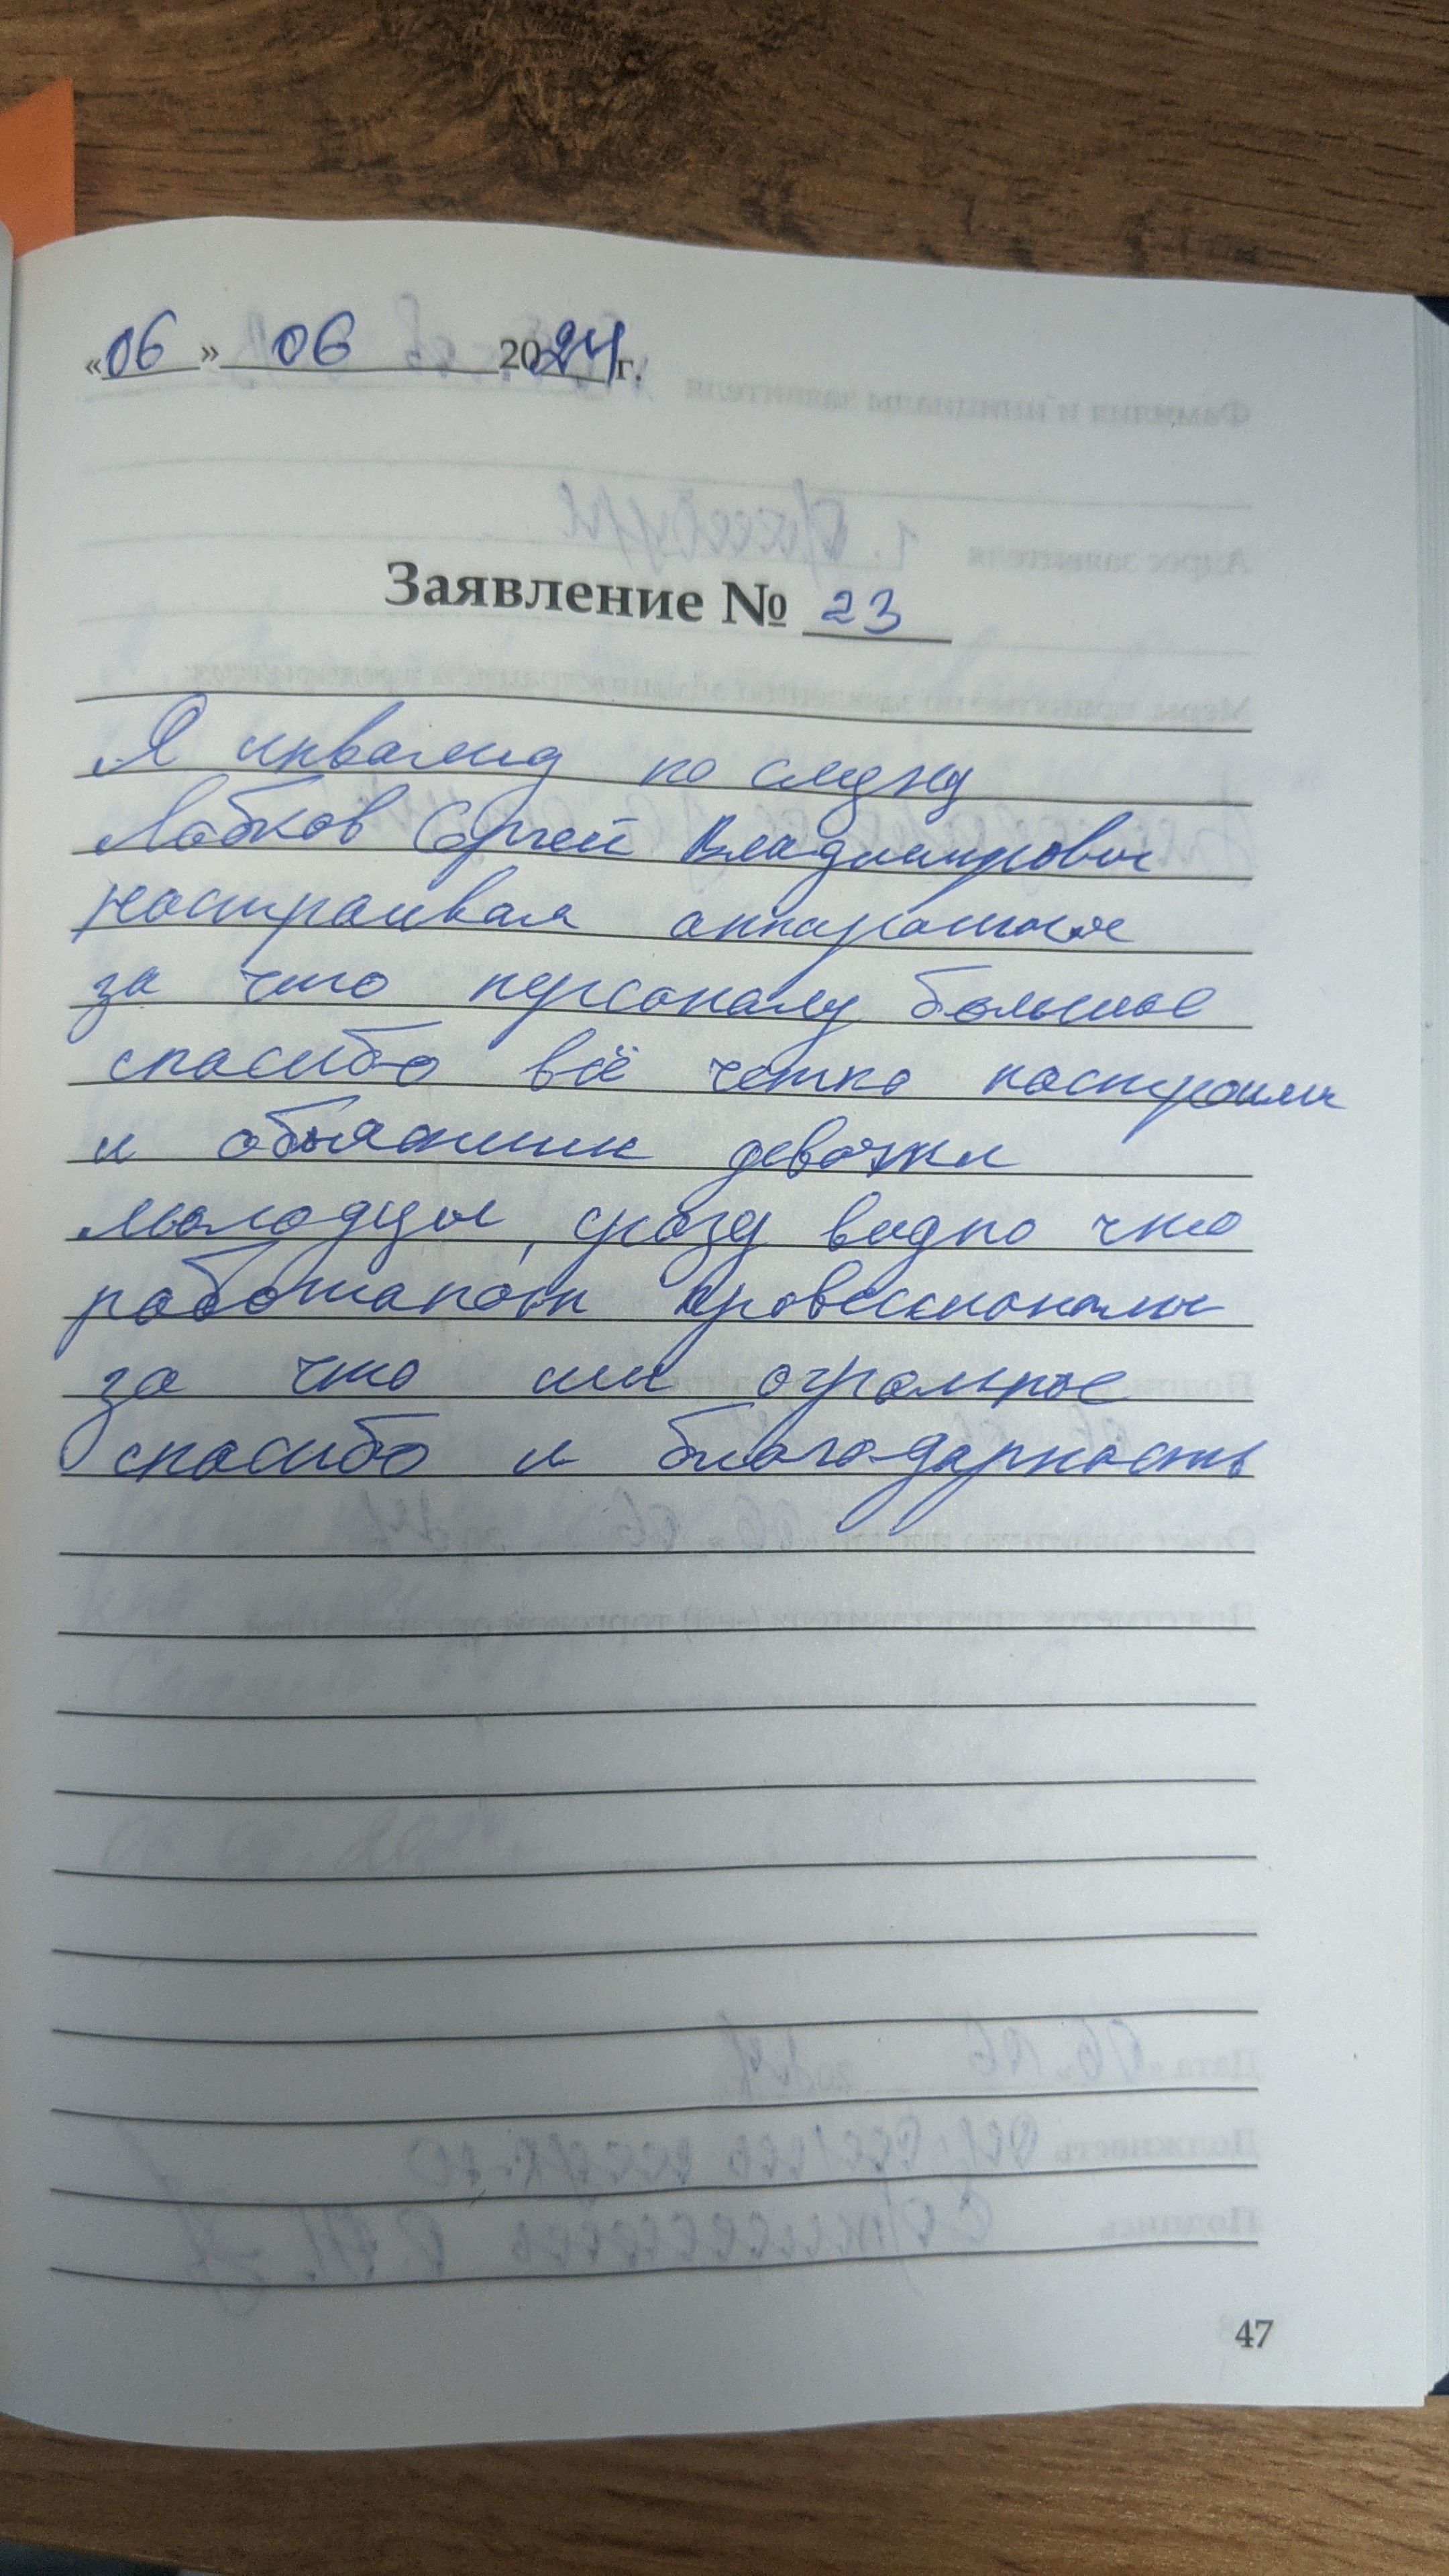 «06» 06 2024 г.
Заявление № 23
Я инвалид по слуху
Лобков Сергей Владимирович
настраивал аппараты
за что персоналу большое
спасибо всё четко настроили
и объяснили девочки
молодцы, сразу видно что
работают провессионалы
за что им огромное
спасибо и благодарность
47